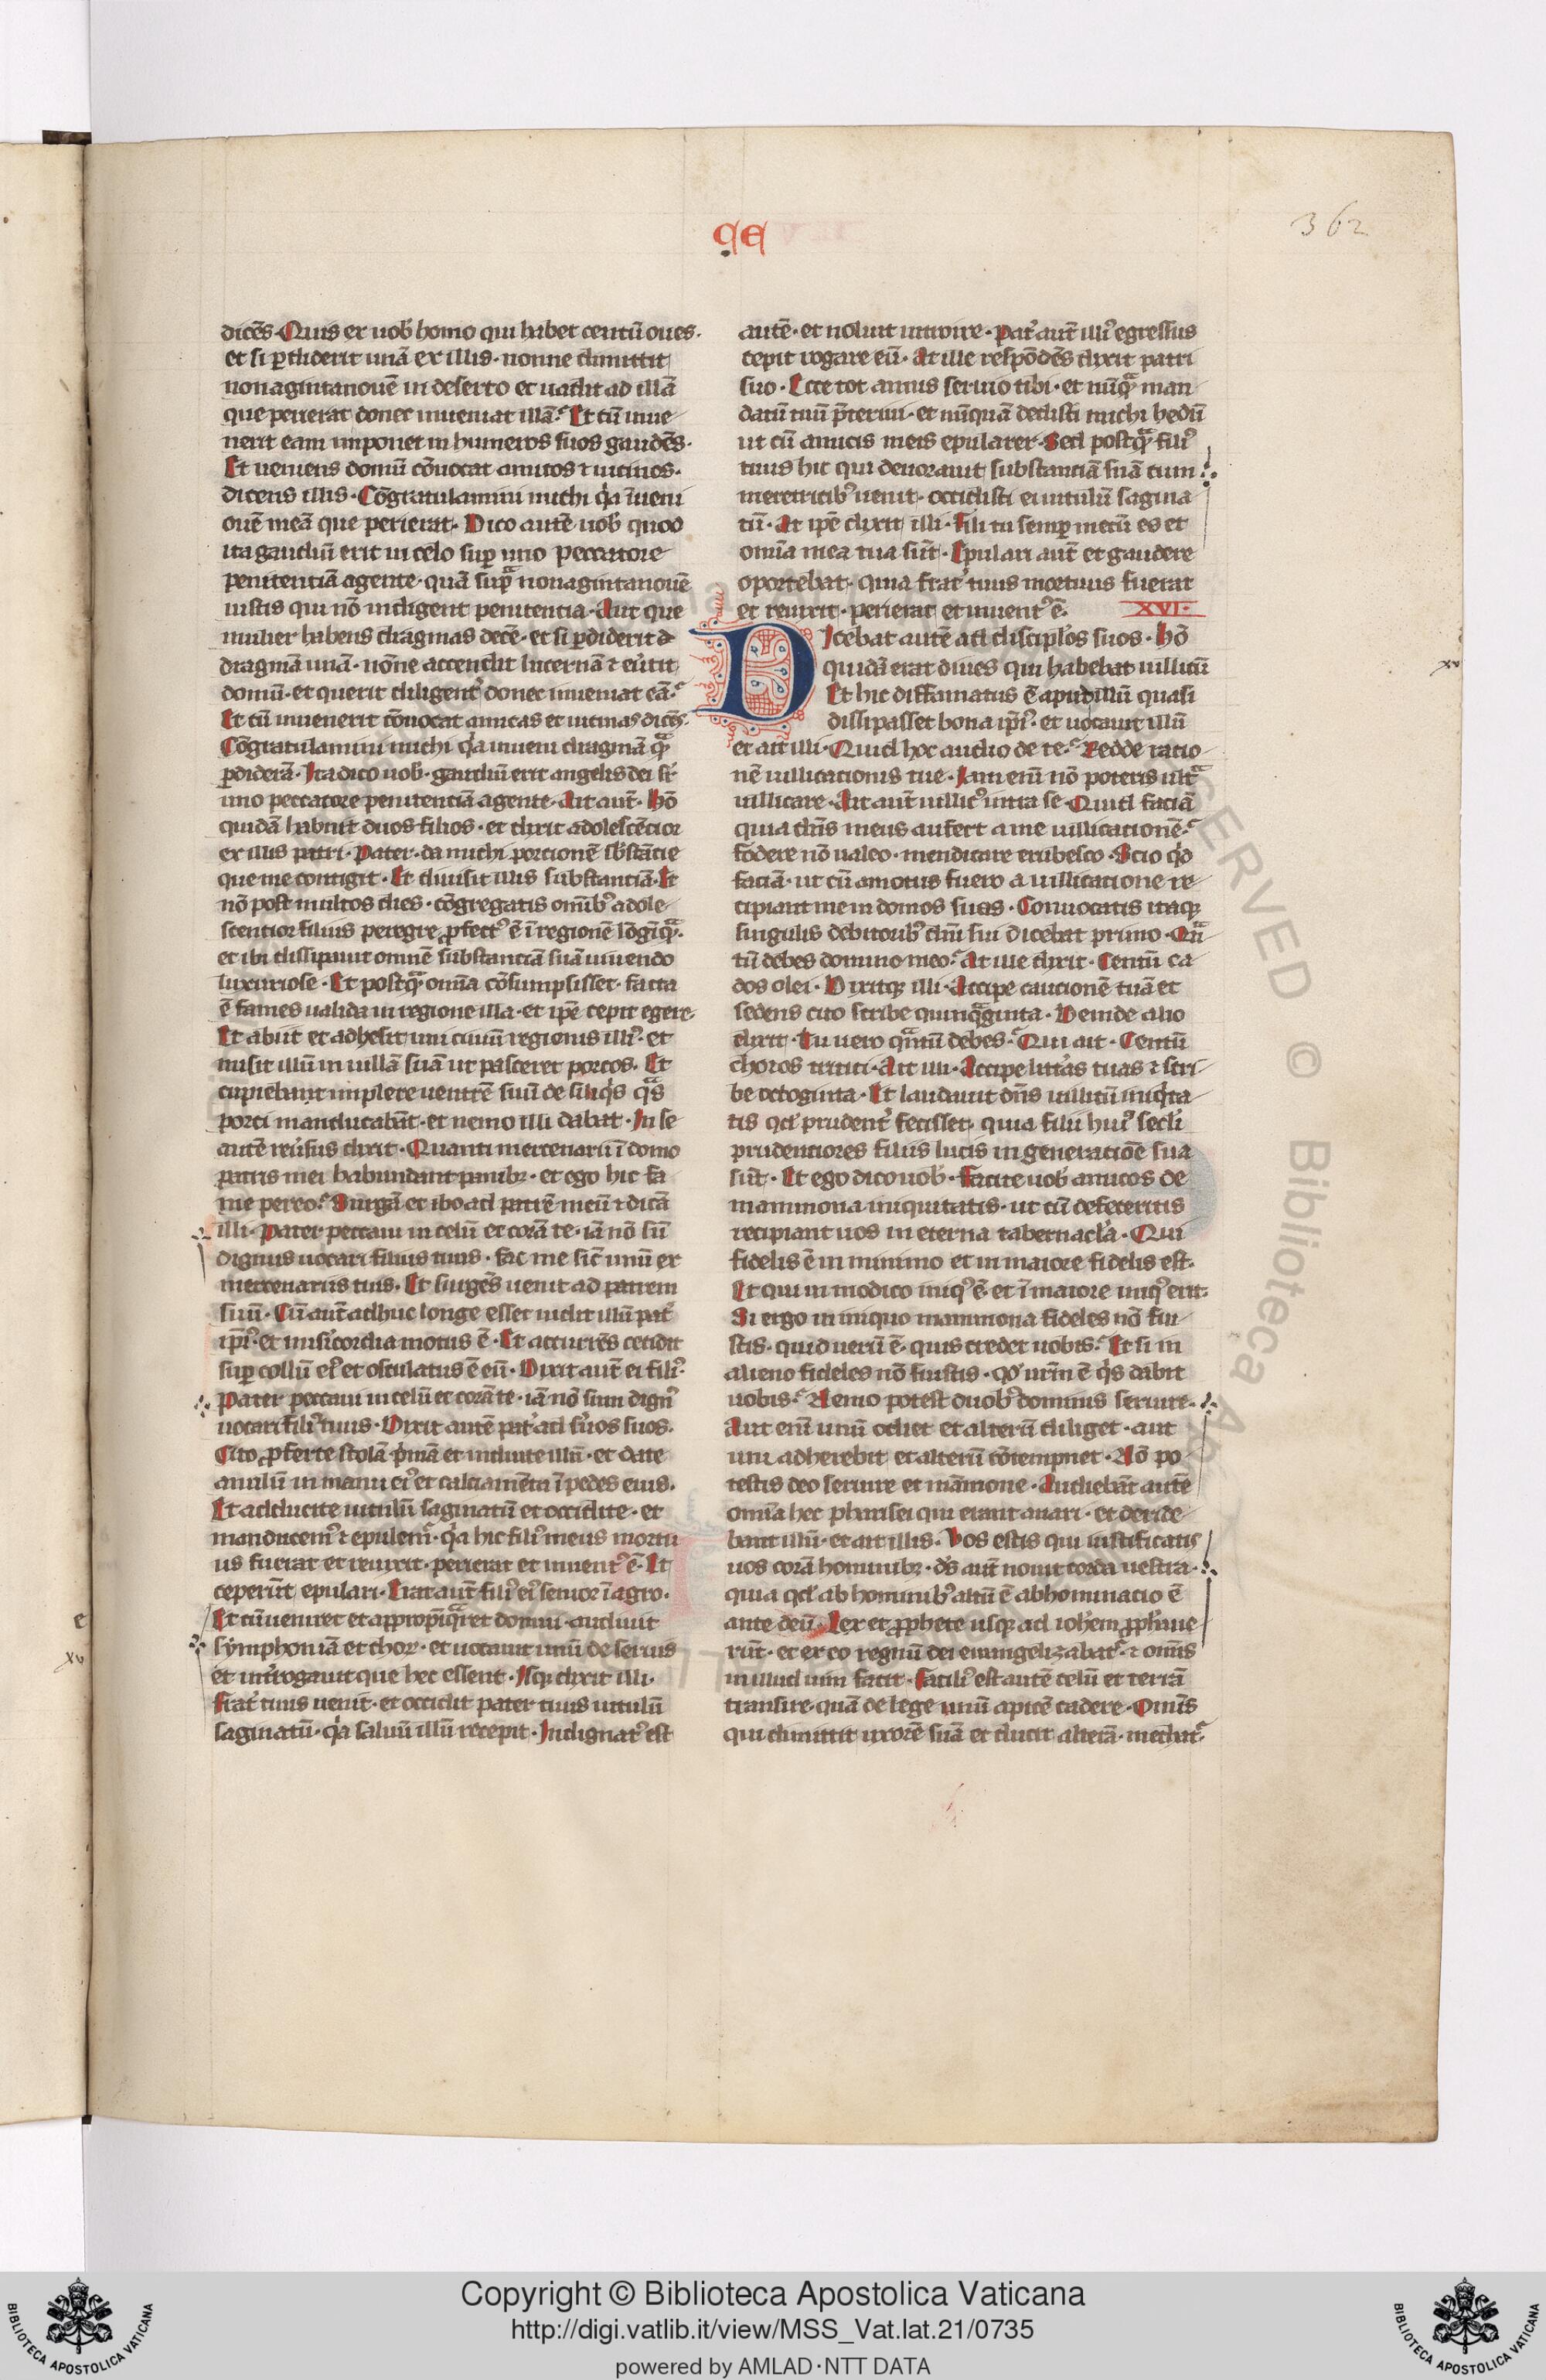 ꝯE
362
dicēs· Quis ex uob̾ homo qui habet centū oues·
et si ꝑdiderit unā ex illis· nonne dimittit
nonagintanouē in deserto et uadit ad illā
que perierat donec inueniat illā? Et cū inue-
nerit eam imponet in humeros suos gaudēs·
Et ueniens domū cōuocat amicos ⁊ uicinos·
dicens illis· Cōgratulamini michi qͥa īueni
ouē meā que perierat· Dico autē uob̾ quod
ita gaudiū erit in celo suꝑ uno peccatore
penitentiā agente· quā supͣ nonagintanouē
iustis qui nō indigent penitentia· Aut que
mulier habens dragmas decē· et si ꝑdiderit d
dragmā unā· nōne accendit lucernā ⁊ eu̾tit
domū· et querit diligent̾ donec inueniat eā?
Et cū inuenerit cōuocat amicas et uicinas dicēs·
Cōgratulamini michi qͥa inueni dragmā qͣ
ꝑdiderā· Ita dico uob̾· gaudiū erit angelis dei sr̾
uno peccatore penitentiā agente· Ait aut̄· Hō
quidā habuit duos filios· et dixit adolescēcior
ex illis patri· Pater· da michi porcionē sb̾stācie
que me contigit· Et diuisit illis substantiā· Et
nō post multos dies· cōgregatis omīb⁹ adole-
scentior filius peregre ꝓfect⁹ ē ī regionē lōgīqͣ·
et ibi dissipauit omnē substanciā suā uiuendo
luxuriose· Et postqͣ om̄ia cōsumpsisset· facta
ē fames ualida in regione illa· et ip̄e cepit egere·
Et abiit et adhesit uni ciuiū regionis illi⁹· et
misit illū in uillā suā ut pasceret porcos· Et
cupiebat implere uentrē suū de siliqͥs qͣs
porci manducabāt· et nemo illi dabat· In se
autē reu̾sus dixit· Quanti mercenarii ī domo
patris mei habundant panibꝫ· et ego hic fa
me pereo? Surgā et ibo ad patrē meū ⁊ dicā
illi· Pater peccaui in celū et corā te· iā nō sū
dignus uocari filius tuus· fac me sic̄ unū ex
mercenariis tuis· Et surgēs uenit ad patrem
suū· Cū aut̄ adhuc longe esset uidit illū pat̾
ip̄i⁹· et mis̾icordia motus ē· Et accurrēs cecidit
suꝑ collū ei⁹ et osculatus ē eū· Dixit aut̄ ei fili⁹·
Pater peccaui in celū et corā te· iā nō sum dign⁹
uocari fili⁹ tuus· Dixit autē pat̾ ad s̾uos suos·
Cito ꝓferte stolā pͥmā et induite illū· et date
anulū in manu ei⁹ et calciamēta ī pedes eius·
Et adducite uitulū saginatū et occidite· et
manducem⁹ ⁊ epulem̾· qͥa hic fili⁹ meus mortu
us fuerat et reuixit· perierat et inuent⁹ ē· Et
ceperūt epulari· Erat aut̄ fili⁹ ei⁹ senior ī agro·
Et cū ueniret et apꝓpīqͣret domui· audiuit
symphoniā et chor̄· et uocauit unū de seruis
et int̾rogauit que hec essent· Isqꝫ dixit illi·
Frat̾ tuus uenit· et occidit pater tuus uitulū
saginatū· qͥa saluū illū recepit· Indignat⁹ est
e
xv
autē· et noluit introire· Pat̾ aut̄ illi⁹ egressus
cepit rogare eū· At ille respōdēs dixit patri
suo· Ecce tot annis seruio tibi· et nūqͣ man-
datū tuū p̄teriui· et nūquā dedisti michi hedū
ut cū amicis meis epularer· Sed postqͣ fili⁹
tuus hic qui deuorauit substanciā suā cum
meretricib⁹ uenit· occidisti ei uitulū sagina-
tū· At ip̄e dixit illi· Fili tu semꝑ mecū es et
om̄ia mea tua sūt· Epulari aut̄ et gaudere
oportebat· quia frat̾ tuus mortuus fuerat
et reuixit· perierat et inuent⁹ ē· XVI·
DIcebat autē ad discipl̾os suos· Hō
quidā erat diues qui habebat uillicū
Et hic diffamatus ē apud illū quasi
dissipasset bona ip̄i⁹· et uocauit illū
et ait illi· Quid hoc audio de te? Redde racio-
nē uillicationis tue· Iam enī nō poteris ultͣ
uillicare· Ait aut̄ uillic⁹ intra se· Quid faciā
quia dn̄s meus aufert a me uillicationē?
fodere nō ualeo· mendicare erubesco· Scio qͥd
faciā· ut cū amotus fuero a uillicatione re-
cipiant me in domos suas· Conuocatis itaqꝫ
singulis debitorib⁹ dn̄i sui dicebat primo· Qͣn̄-
tū debes domino meo? At ille dixit· Centū ca-
dos olei· Dixitqꝫ illi· Accipe caucionē tuā et
sedens cito scribe quinqͣginta· Deinde alio
dixit· Tu uero qͣntū debes? Qui ait· Centū
choros tritici· Ait illi· Accipe litt̾as tuas ⁊ scri-
be octoginta· Et laudauit dn̄s uillicū iniqͥta-
tis qd̾ prudent̾ fecisset· quia filii hui⁹ secl̾i
prudentiores filiis lucis in generatiōe sua
sūt· Et ego dico uob̾· Facite uob̾ amicos de
mammona iniquitatis· ut cū defeceritis
recipiant uos in eterna tabernacl̾a· Qui
fidelis ē in minimo et in maiore fidelis est·
Et qui in modico iniq⁹ ē· et ī maiore iniq⁹ erit·
Si ergo in iniquo mammona fideles nō fui-
stis· quid uerū ē· quis credet uobis? Et si in
alieno fideles nō fuistis· qd̾ ur̄m ē qͥs dabit
uobis? Nemo potest duob⁹ dominis seruire·
Aut enī unū odiet et alterū diliget· aut
uni adherebit et alterū cōtempnet· Nō po-
testis deo seruire et māmone· Audiebāt autē
om̄ia hec pharisei qui erant auari· et deride-
bant illū· et ait illis· Vos estis qui iustificatis
uos corā hominibꝫ· ds̄ aut̄ nouit corda uestra·
quia qd̾ ab hominib⁹ altū ē abhominacio ē
ante deū· Lex et ꝓphete usqꝫ ad ioh̾em ꝓph̾aue-
rūt· et ex eo regnū dei euangelizabat̾· ⁊ omīs
in illud uim facit· Facili⁹ est autē celū et terrā
transire· quā de lege unū apicē cadere· Omīs
qui dimittit uxorē suā et ducit alterā· mechat̾·
xv
Copyright © Biblioteca Apostolica Vaticana
http://digi.vatlib.it/view/MSS_Vat.lat.21/0735
powered by AMLAD·NTT DATA
BIBLIOTECA APOSTOLICA VATICANA
BIBLIOTECA APOSTOLICA VATICANA